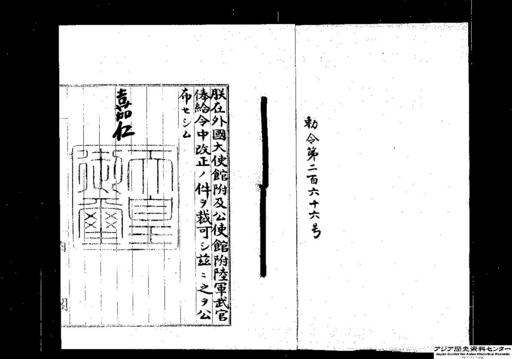 勅令第二百六十六号
朕在外國大使館附及公使館附陸軍武官
俸給令中改正ノ件ヲ裁可シ茲ニ之ヲ公
布セシム
嘉仁
天皇
御璽
アジア歴史資料センター
Japan Center for Asian Historical Records